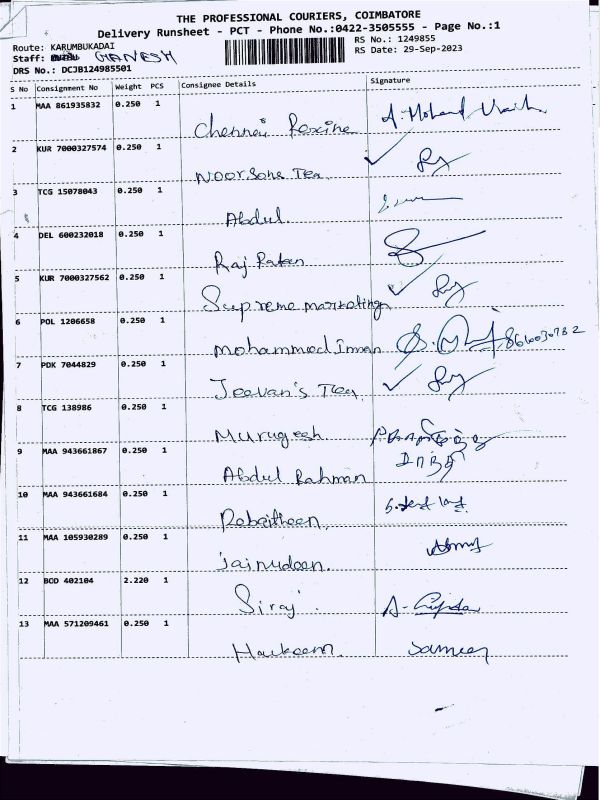 THE PROFESSIONAL COURIERS, COIMBATORE
Delivery Runsheet - PCT - Phone No.:0422-3505555 - Page No.:1
Route: KARUMBUKADAI RS No.: 1249855
Staff: GANESH RS Date: 29-Sep-2023
DRS No.: DCJB124985501
S No Consignment No Weight PCS Consignee Details Signature
1 MAA 861935832 0.250 1
Chennai Rexine A. Mohamed
2 KUR 7000327574 0.250 1
Noorsons Tea
3 TCG 15078043 0.250 1
Abdul
4 DEL 600232018 0.250 1
Raj Ratan
5 KUR 7000327562 0.250 1
Supreme marketing
6 POL 1206658 0.250 1
mohammed Imran
7 PDK 7044829 0.250 1
Jeevan's Tea
8 TCG 138986 0.250 1
Murugesh
9 MAA 943661867 0.250 1
Abdul Rahman
10 MAA 943661684 0.250 1
11 MAA 105930289 0.250 1
Jainudeen
12 BCD 402104 2.220 1
Siraj
13 MAA 571209461 0.250 1
Hakeem Sameer